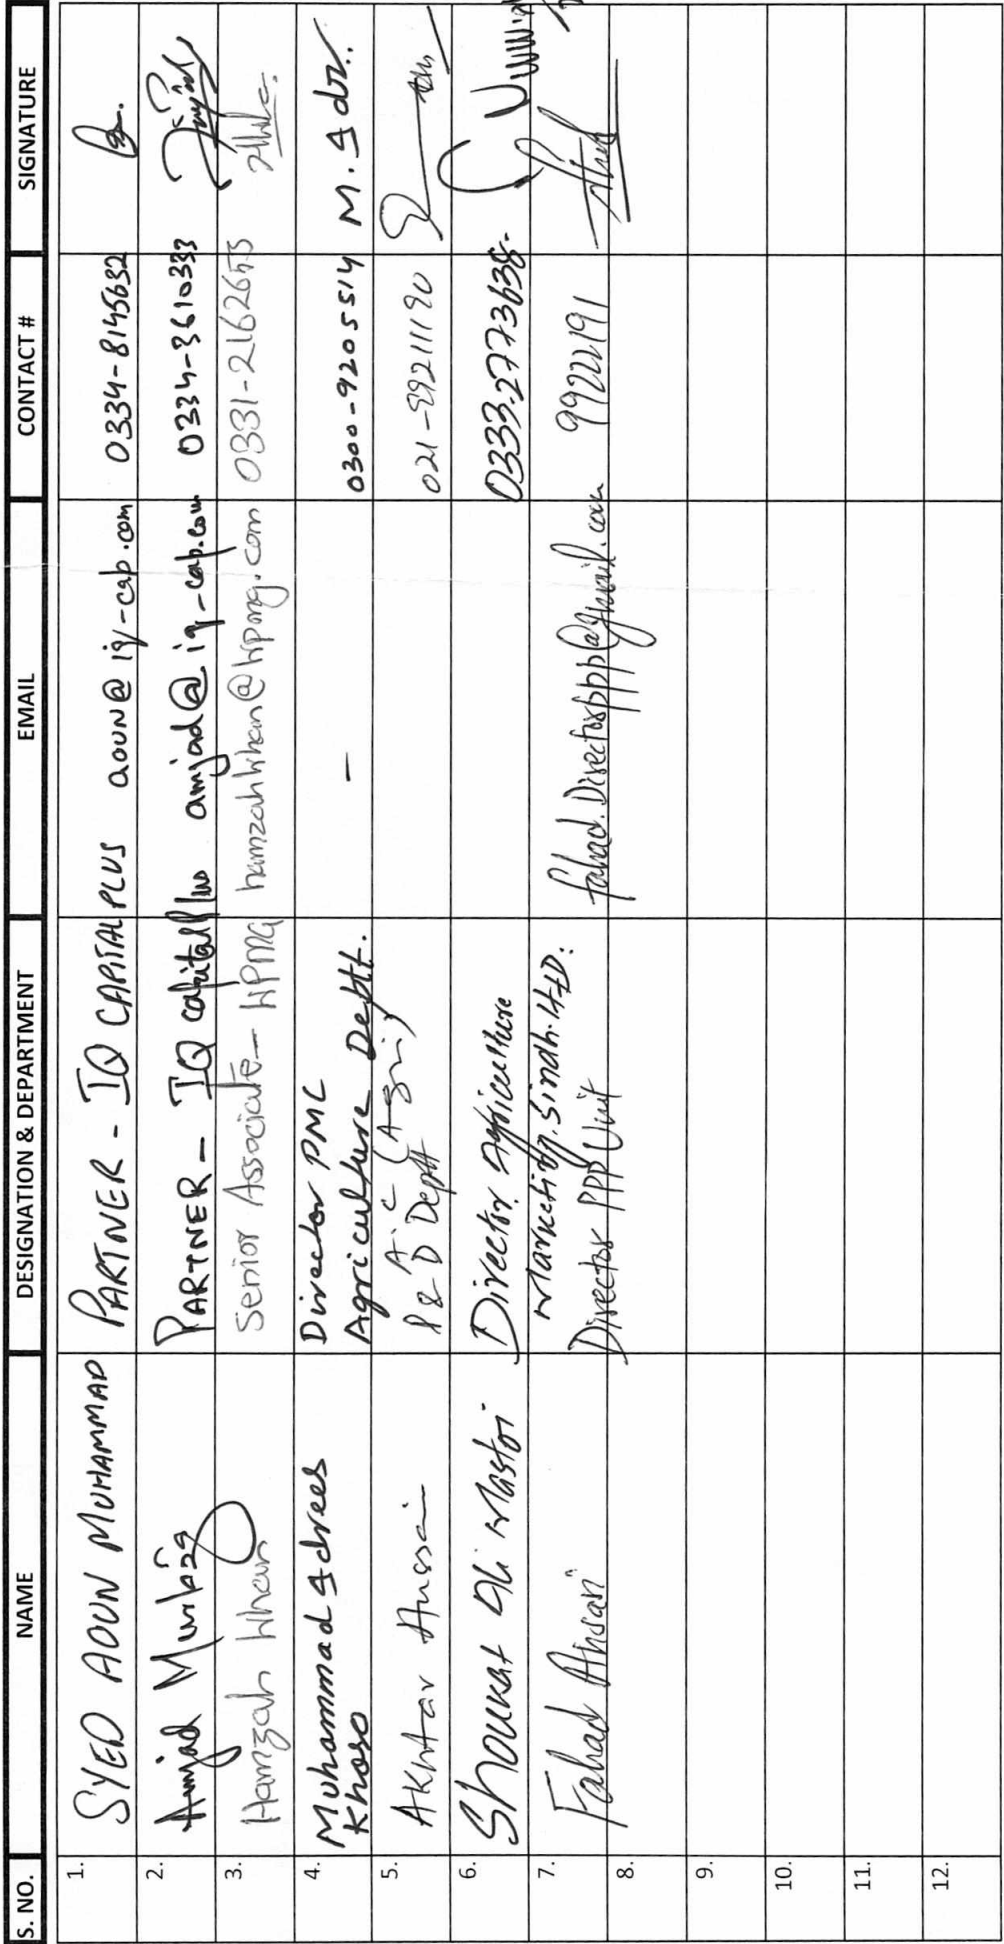 S. NO. NAME DESIGNATION & DEPARTMENT EMAIL CONTACT # SIGNATURE
1. SYED AOUN MUHAMMAD PARTNER - IQ CAPITAL PLUS aoun@iq-cap.com 0334-8145632
2. Amjad PARTNER - IQ capital Plus amjad@iq-cap.com 0334-3610333
3. Hamzah Khan Senior Associate - KPMG hamzahkhan@kpmg.com 0331-2162653
4. Muhammad Idrees Director PMC - 0300-9205514 M. Idr.
Khoso Agriculture Deptt.
5. Akhtar Hussain A.C (Agri) 021-99211190
P & D Deptt
6. Shoukat Ali Mastoi Director Agriculture 0333-2773638
Marketing. Sindh. HYD.
7. Fahad Ansari Director PPP Unit fahad.Directorppp@gmail.com 99222191
8.
9.
10.
11.
12.